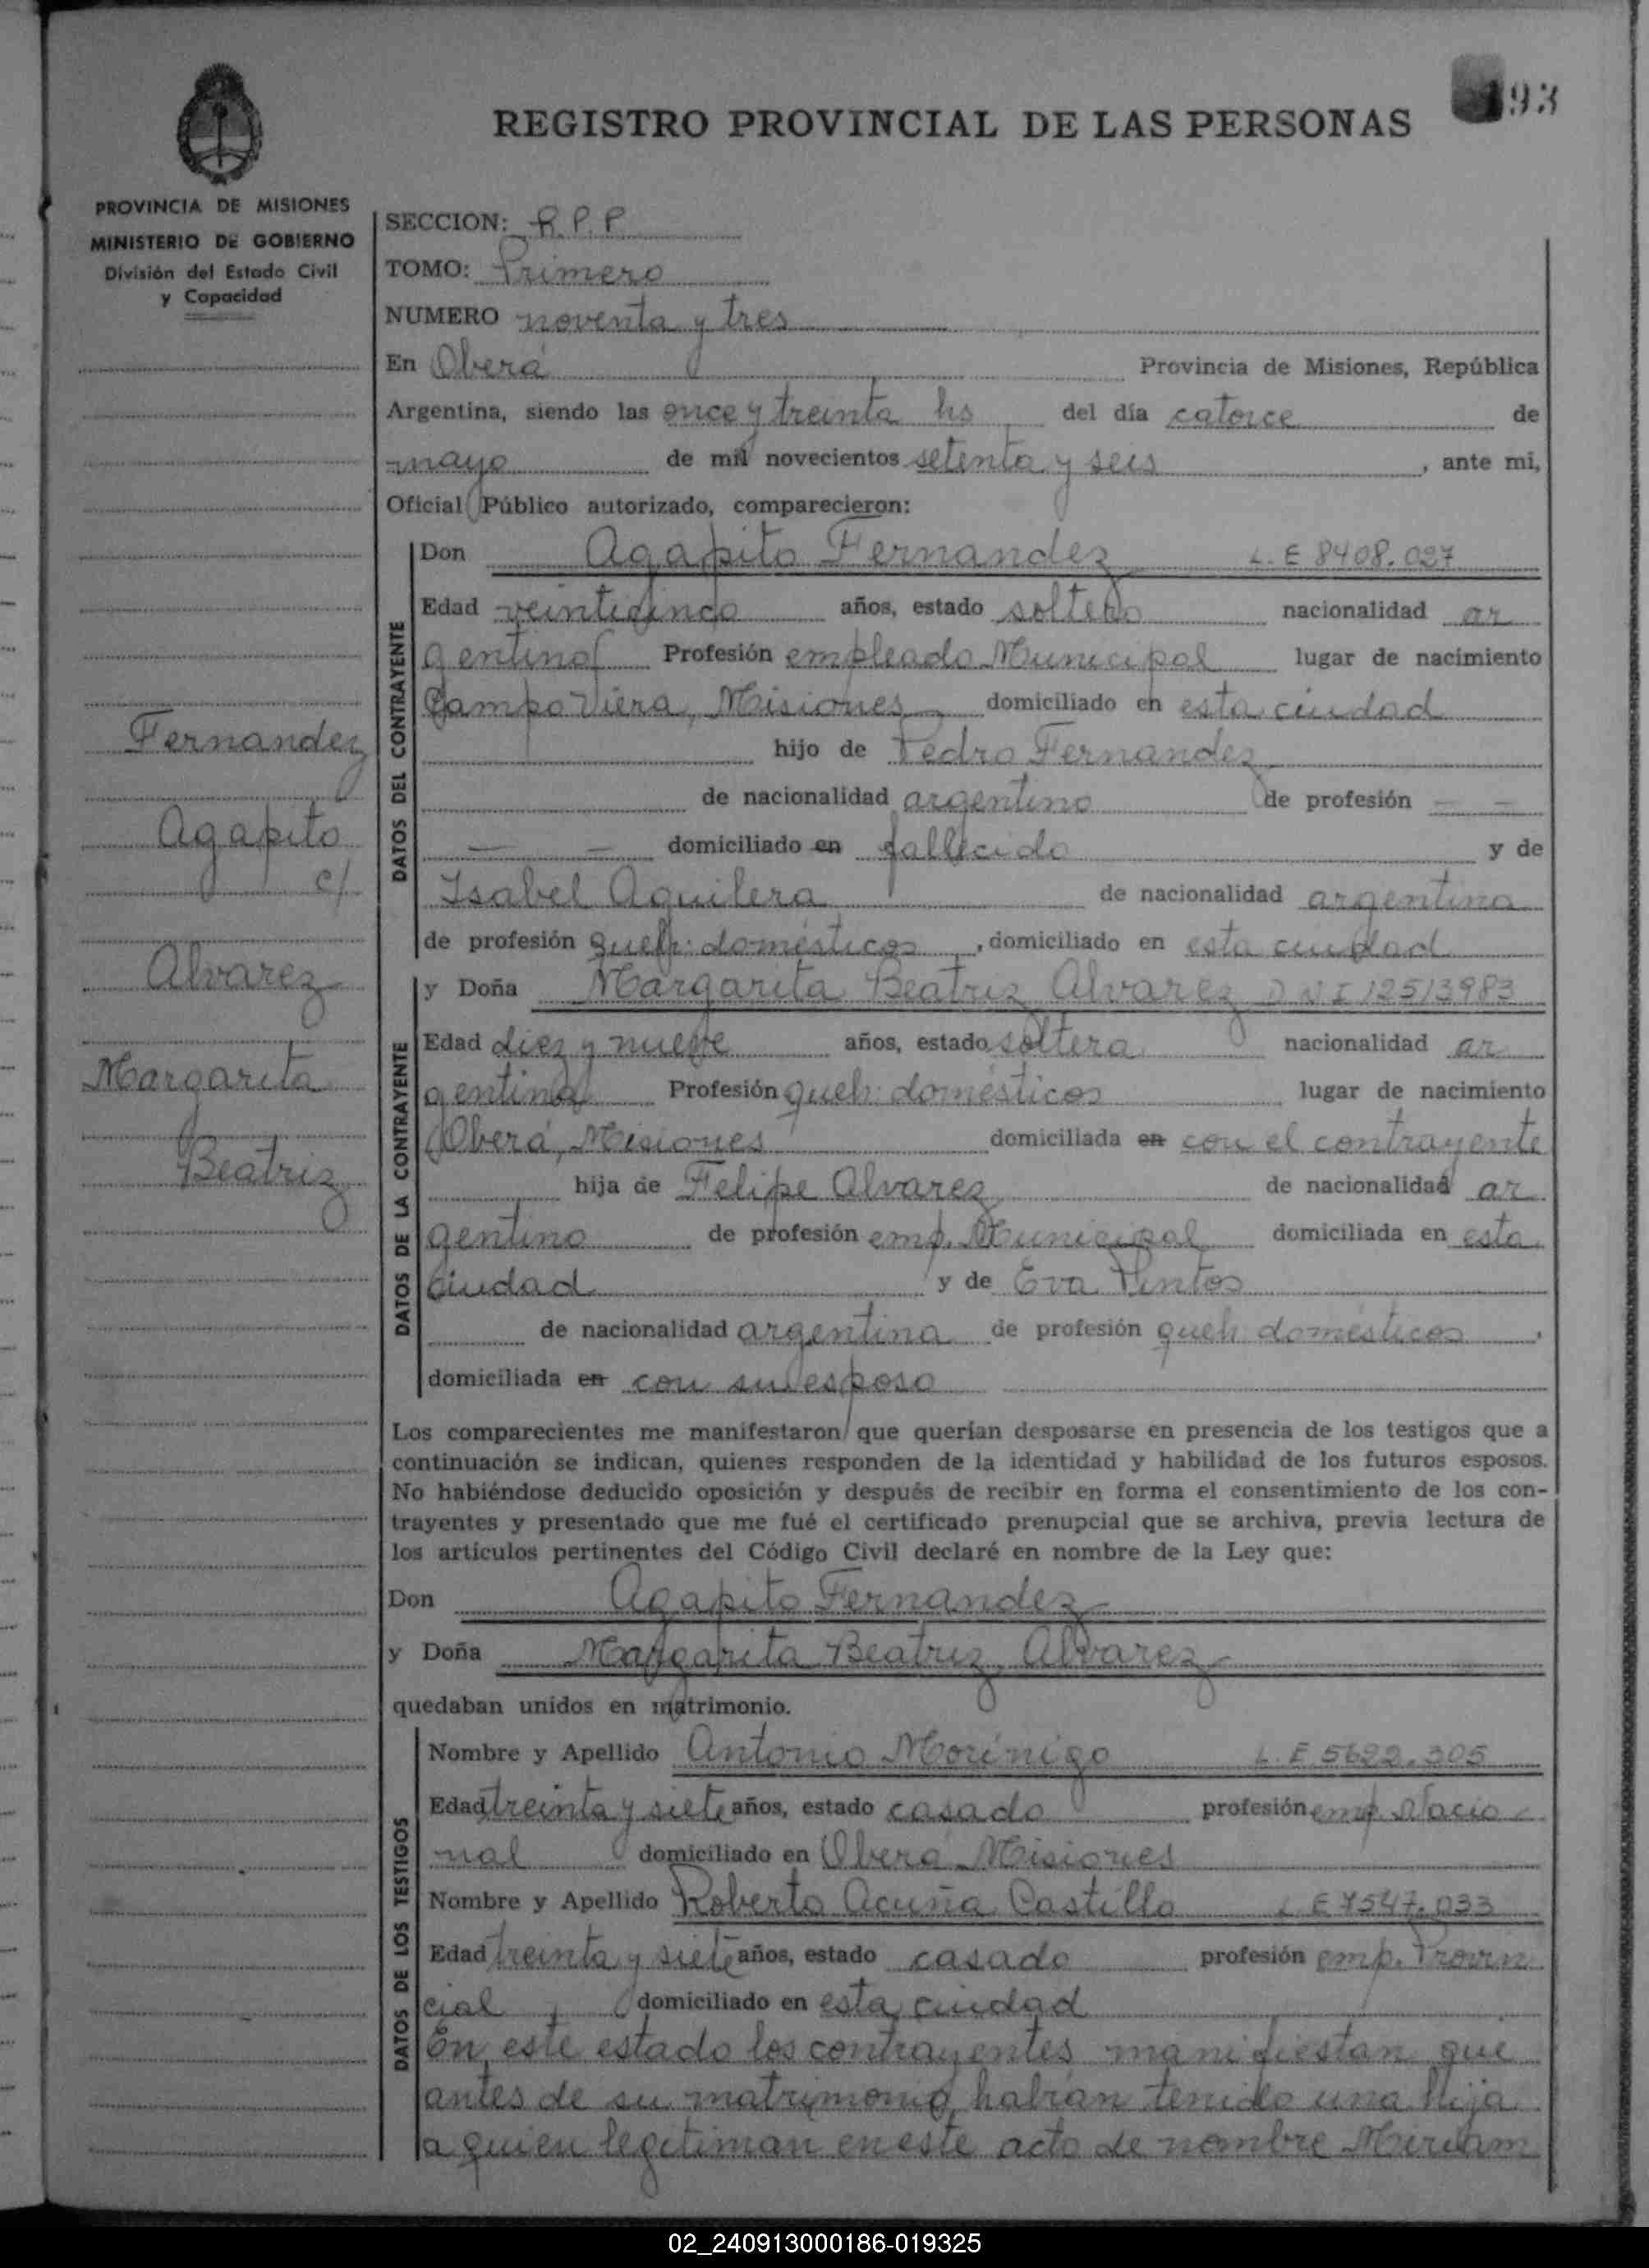 93
REGISTRO PROVINCIAL DE LAS PERSONAS
PROVINCIA DE MISIONES
MINISTERIO DE GOBIERNO
División del Estado Civil
y Capacidad
SECCION: R.P.P
TOMO: Primero
NUMERO noventa y tres
En Oberá Provincia de Misiones, República
Argentina, siendo las once y treinta hs del día catorce de
mayo de mil novecientos setenta y seis, ante mi,
Oficial Público autorizado, comparecieron:
DATOS DEL CONTRAYENTE
Don Agapito Fernandez L.E 8408.027
Edad veinticinco años, estado soltero nacionalidad ar
gentino Profesión empleado Municipal lugar de nacimiento
Campo Viera, Misiones domiciliado en esta ciudad
hijo de Pedro Fernandez
de nacionalidad argentino de profesión — —
— — domiciliado en fallecido y de
Isabel Aguilera de nacionalidad argentina
de profesión queh: domésticos, domiciliado en esta ciudad
Fernandez
Agapito
c/
Alvarez
Margarita
Beatriz
DATOS DE LA CONTRAYENTE
y Doña Margarita Beatriz Alvarez D N I 12513983
Edad diez y nueve años, estado soltera nacionalidad ar
gentina Profesión queh: domésticos lugar de nacimiento
Oberá, Misiones domiciliada en con el contrayente
hija de Felipe Alvarez de nacionalidad ar
gentino de profesión emp. Municipal domiciliada en esta
ciudad y de Eva Pintos
de nacionalidad argentina de profesión queh domésticos,
domiciliada en con su esposo
Los comparecientes me manifestaron que querían desposarse en presencia de los testigos que a
continuación se indican, quienes responden de la identidad y habilidad de los futuros esposos.
No habiéndose deducido oposición y después de recibir en forma el consentimiento de los con-
trayentes y presentado que me fué el certificado prenupcial que se archiva, previa lectura de
los artículos pertinentes del Código Civil declaré en nombre de la Ley que:
Don Agapito Fernandez
y Doña Margarita Beatriz Alvarez
quedaban unidos en matrimonio.
DATOS DE LOS TESTIGOS
Nombre y Apellido Antonio Morinigo L.E 5622.305
Edad treinta y siete años, estado casado profesión emp. Nacio
nal domiciliado en Oberá Misiones
Nombre y Apellido Roberto Acuña Castillo L E 7547.033
Edad treinta y siete años, estado casado profesión emp. Provin
cial domiciliado en esta ciudad
En este estado los contrayentes manifiestan que
antes de su matrimonio habían tenido una hija
a quien legitiman en este acto de nombre Miriam
02_240913000186-019325